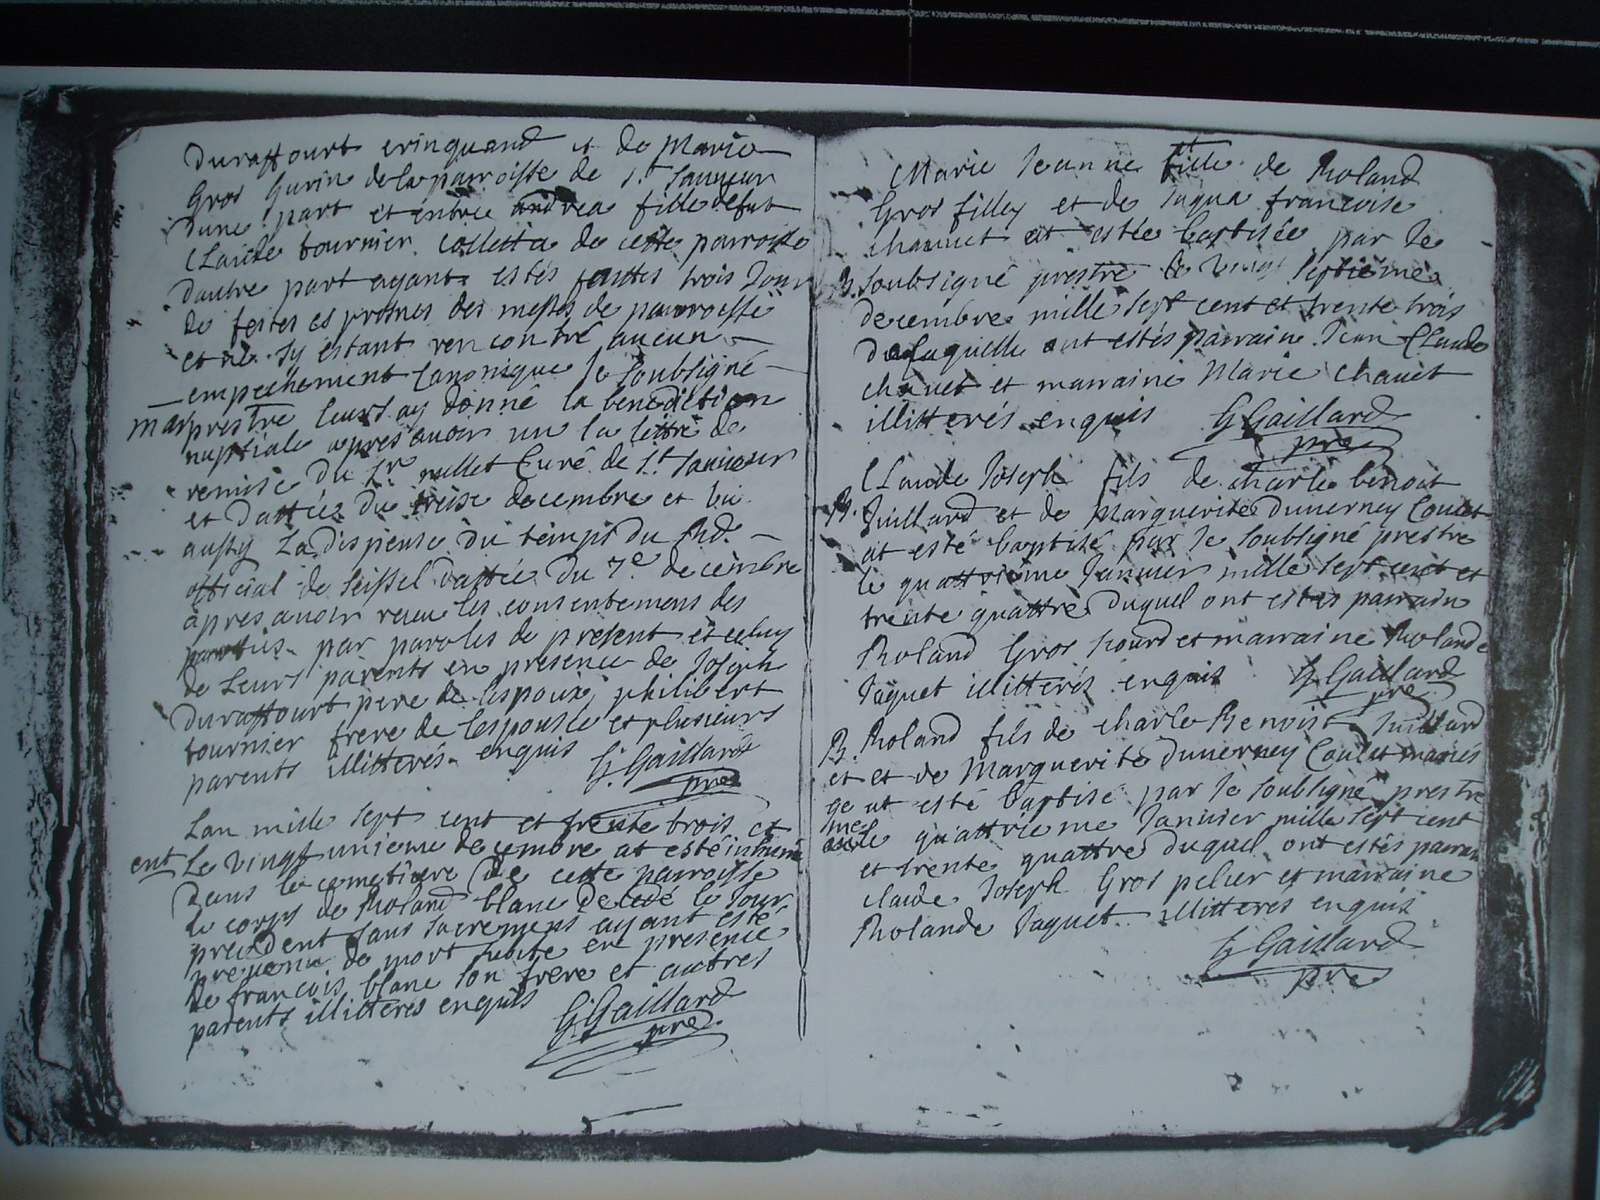 Duraffourt crinquand et de Marie
Gros Gurin de la parroisse de St. Sauveur
dune part et entrie andrea fille defut
Claude tournier Colletta de cette parroisse
dautre part ayants estés faittes trois Jour
de festes es prosnes des messes de parroisse
et ne sy estant rencontré aucun
empechement Canonique Je soubsigné
mar prestre leurs ay donné la benediction
nuptiale apres avoir vu la lettre de
remise du Sr. millet Curé de St. Sauveur
et dattée du treise decembre et vu
aussy La dispense du temps du Rd.
official de seissel dattée du 7e decembre
apres avoir receu les consentemens des
parties par paroles de present et celuy
de Leurs parents en presence de Joseph
Duraffourt pere de lespoux, philibert
tournier frere de lespousée et plusieurs
parents illitterés enquis G. Gaillard
pre
Lan mille sept cent et trente trois et
ent Le vingt unieme decembre at esté inhumé
Dans le cemetiere de cette parroisse
le corps de Roland blanc decedé le Jour
precedent sans sacremens ayant esté
prevenu de mort subite en presence
de francois blanc son frere et autres
parents illitteres enquis
G. Gaillard
pre
Marie Jeanne fille de Roland
Gros filley et de Jaqua francoise
chavuet at estée baptisée par Je
B. soubsigné prestre le vingt septieme
decembre mille sept cent et trente trois
de laquelle ont estés parrain Jean Claude
chavet et marraine Marie chavet
illitterés enquis G. Gaillard
pre
Claude Joseph fils de charle benoit
B. Juillard et de Marguerite Duverney Coulet
at esté baptisé par Je soubsigné prestre
le quattrieme Janvier mille sept cent et
trente quattre duquel ont estés parrain
Roland Gros hourd et marraine Rolande
Jaquet illitterés enquis G. Gaillard
pre
B. Roland fils de charle Benoist Juillard
et et de Marguerite Duverney Coulet mariés
ge at esté baptisé par Je soubsigné prestre
me le quattrieme Janvier mille sept cent
et trente quattre duquel ont estés parrain
claude Joseph Gros pelier et marraine
Rolande Jaquet illitteres enquis
G. Gaillard
pre